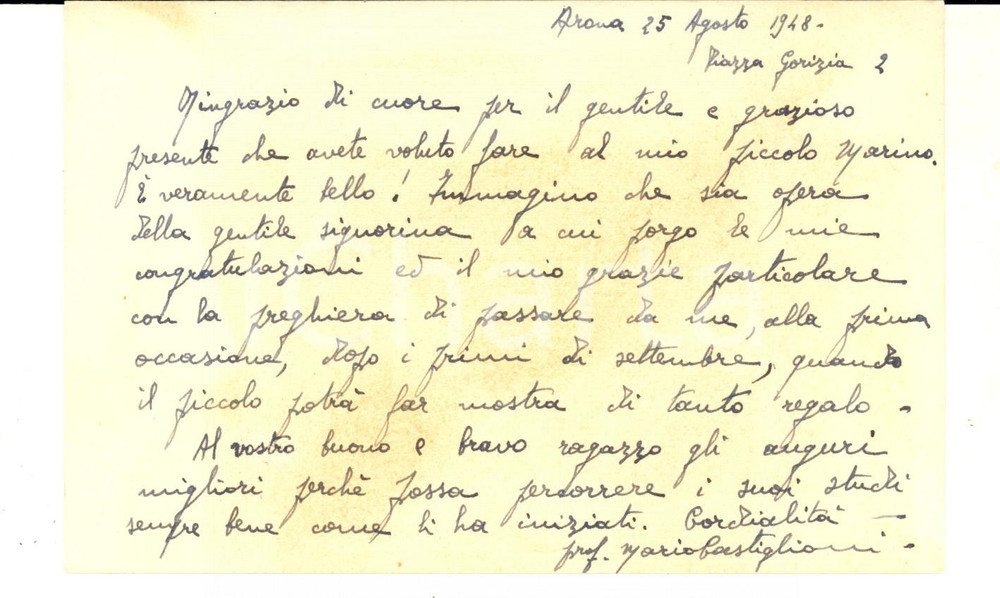 Arona 25 Agosto 1948.
Piazza Gorizia 2
Ringrazio di cuore per il gentile e grazioso
presente che avete voluto fare al mio piccolo Marino.
È veramente bello! Immagino che sia opera
della gentile signorina a cui porgo le mie
congratulazioni ed il mio grazie particolare
con la preghiera di passare da me, alla prima
occasione, dopo i primi di settembre, quando
il piccolo potrà far mostra di tanto regalo.
Al vostro buono e bravo ragazzo gli auguri
migliori perchè possa percorrere i suoi studi
sempre bene come li ha iniziati. Cordialità —
prof. Mario Castiglioni.